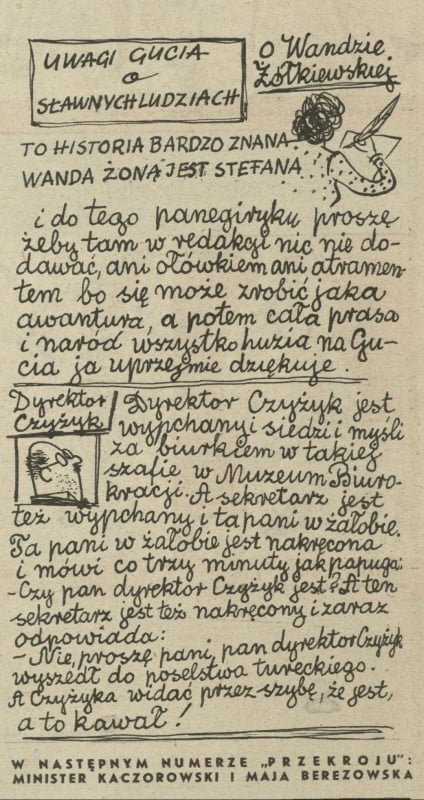 UWAGI GUCIA
o
SŁAWNYCH LUDZIACH
O Wandzie
Żółkiewskiej
TO HISTORIA BARDZO ZNANA
WANDA ŻONĄ JEST STEFANA
i do tego panegiryku proszę
żeby tam w redakcji nic nie do-
dawać, ani ołówkiem ani atramen-
tem bo się może zrobić jaka
awantura, a potem cała prasa
i naród wszystko huzia na Gu-
cia ja uprzejmie dziękuje.
Dyrektor
Czyżyk
Dyrektor Czyżyk jest
wypchany i siedzi i myśli
za biurkiem w takiej
szafie w Muzeum Biuro-
kracji. A sekretarz jest
też wypchany i ta pani w żałobie.
Ta pani w żałobie jest nakręcona
i mówi co trzy minuty jak papuga:
- Czy pan dyrektor Czyżyk jest? A ten
sekretarz jest też nakręcony i zaraz
odpowiada:
- Nie, proszę pani, pan dyrektor Czyżyk
wyszedł do poselstwa tureckiego.
A Czyżyka widać przez szybę, że jest,
a to kawał!
W NASTĘPNYM NUMERZE „PRZEKROJU":
MINISTER KACZOROWSKI I MAJA BEREZOWSKA